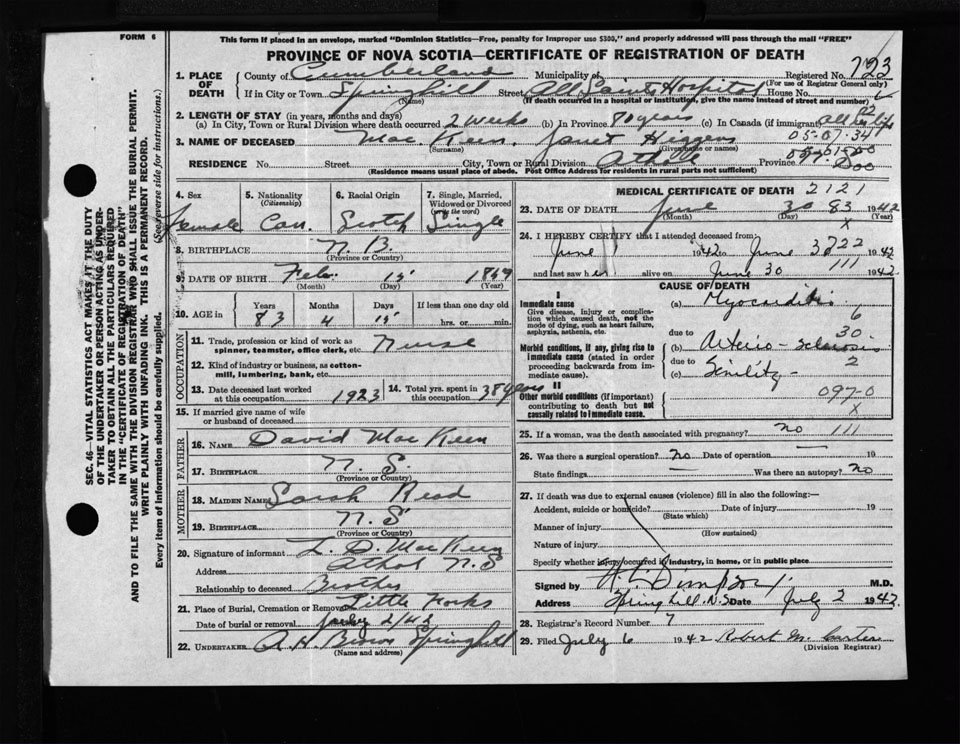 FORM 6
This form if placed in an envelope, marked "Dominion Statistics—Free, penalty for improper use $300," and properly addressed will pass through the mail "FREE"
PROVINCE OF NOVA SCOTIA—CERTIFICATE OF REGISTRATION OF DEATH
SEC. 46—VITAL STATISTICS ACT MAKES IT THE DUTY
OF THE UNDERTAKER OR PERSON ACTING AS UNDER-
TAKER TO OBTAIN ALL THE PARTICULARS REQUIRED
IN THE "CERTIFICATE OF REGISTRATION OF DEATH"
AND TO FILE THE SAME WITH THE DIVISION REGISTRAR WHO SHALL ISSUE THE BURIAL PERMIT.
WRITE PLAINLY WITH UNFADING INK. THIS IS A PERMANENT RECORD.
Every item of information should be carefully supplied. (See reverse side for instructions.)
1. PLACE OF DEATH County of Cumberland Municipality of Registered No. 723
(For use of Registrar General only)
If in City or Town Springhill Street All Saints Hospital House No.
(Name) (If death occurred in a hospital or institution, give the name instead of street and number)
2. LENGTH OF STAY (in years, months and days)
(a) In City, Town or Rural Division where death occurred 2 weeks (b) In Province 80 years (c) In Canada (if immigrant) all her life
05-07-34
3. NAME OF DECEASED Mac Keen, Janet Higgens
(Surname) (Given name or names)
RESIDENCE No. Street City, Town or Rural Division Athole Province
(Residence means usual place of abode. Post Office Address for residents in rural parts not sufficient)
4. Sex Female
5. Nationality (Citizenship) Can.
6. Racial Origin Scotch
7. Single, Married, Widowed or Divorced (write the word) Single
8. BIRTHPLACE N. B.
(Province or Country)
9. DATE OF BIRTH Feb. 15 1859
(Month) (Day) (Year)
10. AGE in Years 83 Months 4 Days 15 If less than one day old hrs. or min.
OCCUPATION
11. Trade, profession or kind of work as spinner, teamster, office clerk, etc. Nurse
12. Kind of industry or business, as cotton-mill, lumbering, bank, etc.
13. Date deceased last worked at this occupation 1923 14. Total yrs. spent in this occupation 38 years
15. If married give name of wife or husband of deceased
FATHER
16. NAME David Mac Keen
17. BIRTHPLACE N. S.
(Province or Country)
MOTHER
18. MAIDEN NAME Sarah Read
19. BIRTHPLACE N. S
(Province or Country)
20. Signature of informant L. D. Mac Keen
Address Athol N. S
Relationship to deceased Brother
21. Place of Burial, Cremation or Removal Little Forks
Date of burial or removal July 2/42
22. UNDERTAKER A. H. Brown Springhill
(Name and address)
MEDICAL CERTIFICATE OF DEATH 2121
23. DATE OF DEATH June 30 83 1942
(Month) (Day) (Year)
X
24. I HEREBY CERTIFY that I attended deceased from:
June 1942 to June 3 222 1942
111
and last saw her alive on June 30 1942
CAUSE OF DEATH
I
Immediate cause
Give disease, injury or complication which caused death, not the mode of dying, such as heart failure, asphyxia, asthenia, etc.
(a) Myocarditis 6
due to 30
Morbid conditions, if any, giving rise to immediate cause (stated in order proceeding backwards from immediate cause).
(b) Arterio-sclerosis
due to 2
(c) Senility
II
Other morbid conditions (if important) contributing to death but not causally related to immediate cause.
097-0
X
25. If a woman, was the death associated with pregnancy? no 111
26. Was there a surgical operation? no Date of operation 19
State findings — Was there an autopsy? no
27. If death was due to external causes (violence) fill in also the following:—
Accident, suicide or homicide? Date of injury 19
(State which)
Manner of injury
(How sustained)
Nature of injury
Specify whether injury occurred in industry, in home, or in public place
Signed by M.D.
Address Springhill N.S. Date July 2 1942.
28. Registrar's Record Number 7
29. Filed July 6 1942 Robert M. Carter
(Division Registrar)